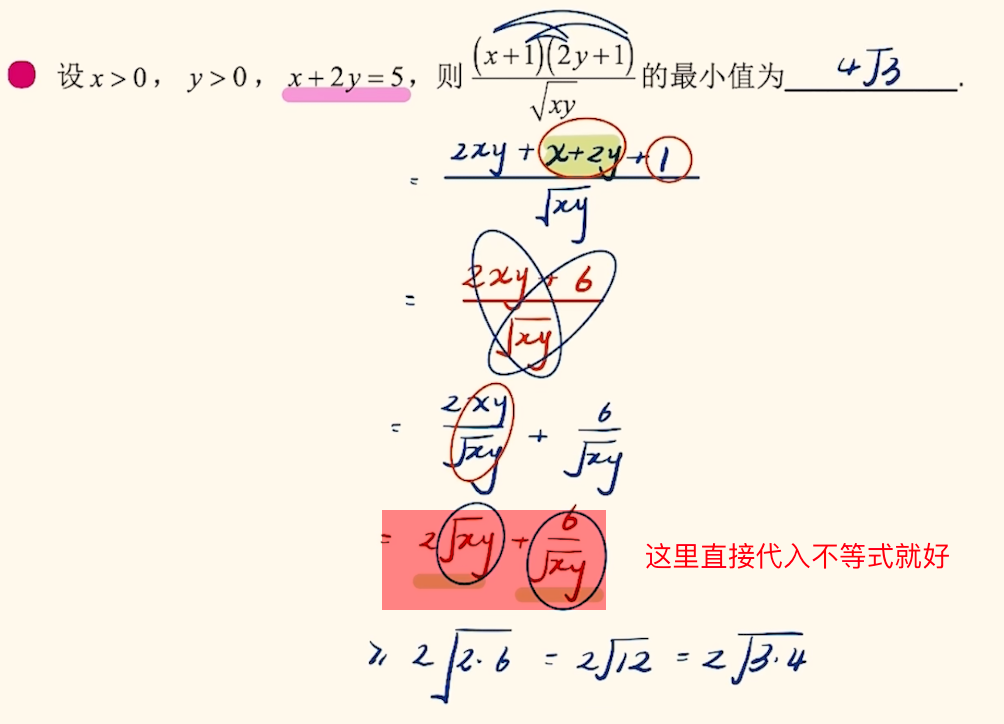 设 x > 0， y > 0， x + 2y = 5，则 \frac{(x+1)(2y+1)}{\sqrt{xy}} 的最小值为 4√3 .
= \frac{2xy + x+2y + 1}{\sqrt{xy}}
= \frac{2xy + 6}{\sqrt{xy}}
= \frac{2xy}{\sqrt{xy}} + \frac{6}{\sqrt{xy}}
= 2\sqrt{xy} + \frac{6}{\sqrt{xy}} 这里直接代入不等式就好
≥ 2\sqrt{2·6} = 2\sqrt{12} = 2\sqrt{3·4}